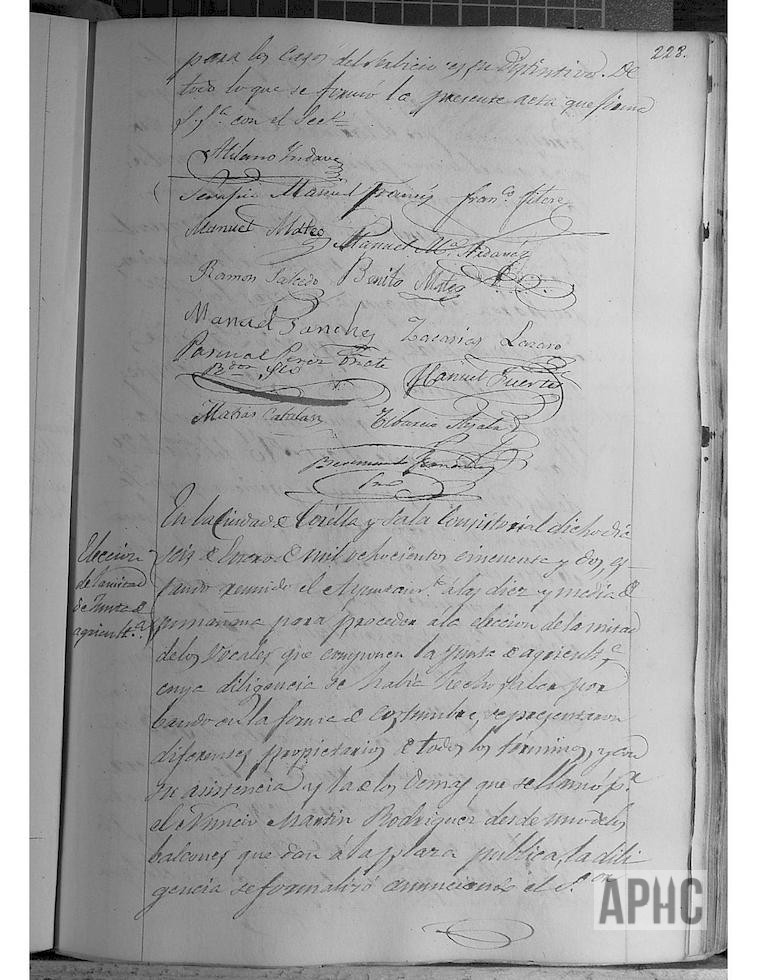 228.
para los casos del servicio es su distintivo. De
todo lo que se firmó la presente acta que firma
S. Sª con el Secº
Serafin Manuel Francés Franco Fitero
Manuel Mateo Manuel Mª
Ramon Salcedo Benito Mateo
Manuel Sanchez Zacarias Lazaro
Pascual Perez Oñate
Rdor Sco Manuel Fuertes
Matias Catalan Tiburcio Ayala
Bienvenido Fernandez
Srio
Eleccion
de la mitad
de Junta de
agricultª
En la Ciudad de Corella y Sala Consistorial dicho dia
seis de Enero de mil ochocientos cincuenta y dos, es-
tando reunido el Ayuntamtº á las diez y media de
su mañana para proceder á la eleccion de la mitad
de los Vocales que componen la Junta de agricultª
cuya diligencia se habia hecho saber por
bando en la forma de costumbre, se presentaron
diferentes propietarios de todos los términos, y con
su asistencia y la de los demas que se llamó pr
el Nuncio Martin Rodriguez desde uno de los
balcones que dan á la plaza publica, la dili
gencia se formalizó anunciando el Sor
APHC